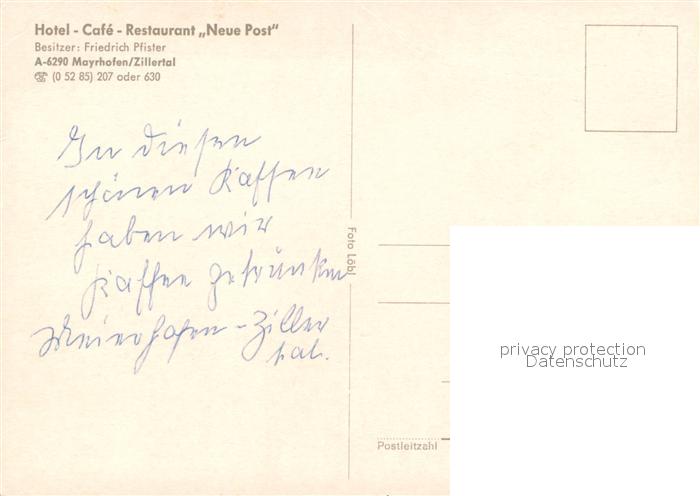 Hotel - Café - Restaurant „Neue Post“
Besitzer: Friedrich Pfister
A-6290 Mayrhofen/Zillertal
☏ (0 52 85) 207 oder 630
In diesen
schönen Kaffee
haben wir
Kaffee getrunken
Meierhofen - Ziller
tal.
Foto Löbl
privacy protection
Datenschutz
Postleitzahl